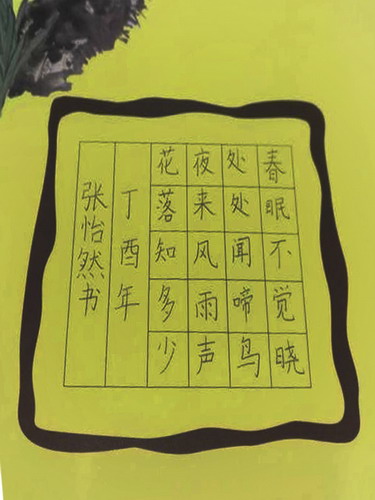 春眠不觉晓
处处闻啼鸟
夜来风雨声
花落知多少
丁酉年
张怡然书